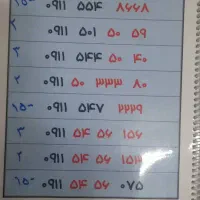 ۱۵- ۰۹۱۱ ۵۵۴ ۸۶۶۸
۲ ۰۹۱۱ ۵۰۱ ۵۰ ۵۹
۲ ۰۹۱۱ ۵۴۴ ۵۰ ۴۰
۲ ۰۹۱۱ ۵۰ ۳۳۳ ۸۰
۱۵- ۰۹۱۱ ۵۴۷ ۲۲۲۹
۳ ۰۹۱۱ ۵۴ ۵۶ ۱۵۶
۲ ۰۹۱۱ ۵۴ ۵۶ ۱۵۳
۶۵- ۰۹۱۱ ۵۴ ۵۶ ۰۷۵